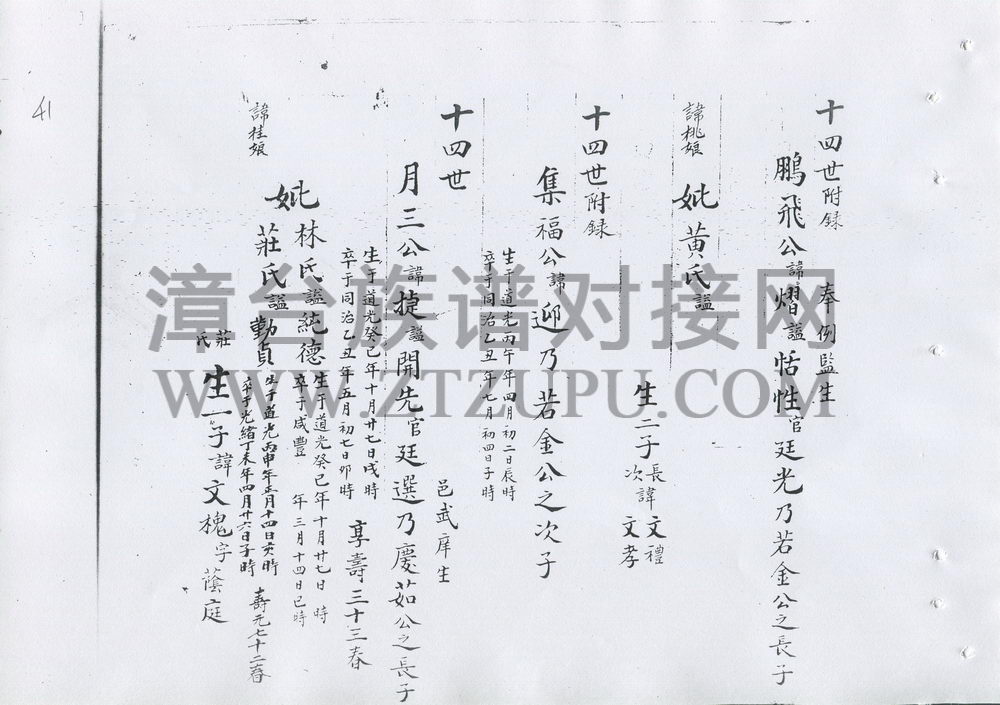 十四世附録
奉例監生
鵬飛公諱熠謚恬性官廷光乃若金公之長子
諱桃娘
妣黃氏謚
生二子長諱文禮
次文孝
十四世附録
集福公諱迎乃若金公之次子
生于道光丙午年四月初二日辰時
卒于同治乙丑年七月初四日子時
十四世
邑武庠生
月三公諱㨗謚開先官廷選乃慶茹公之長子
生于道光癸巳年十月廿七日戌時
卒于同治乙丑年五月初七日卯時
享壽三十三春
妣林氏謚純德生于道光癸巳年十月廿七日 時
卒于咸豐 年三月十四日巳時
諱桂娘
莊氏謚勤貞生于道光丙申年五月十四日亥時
卒于光緒丁未年四月廿六日子時
壽元七十二春
莊氏生一子諱文槐字蔭庭
41
漳台族谱对接网
WWW.ZTZUPU.COM